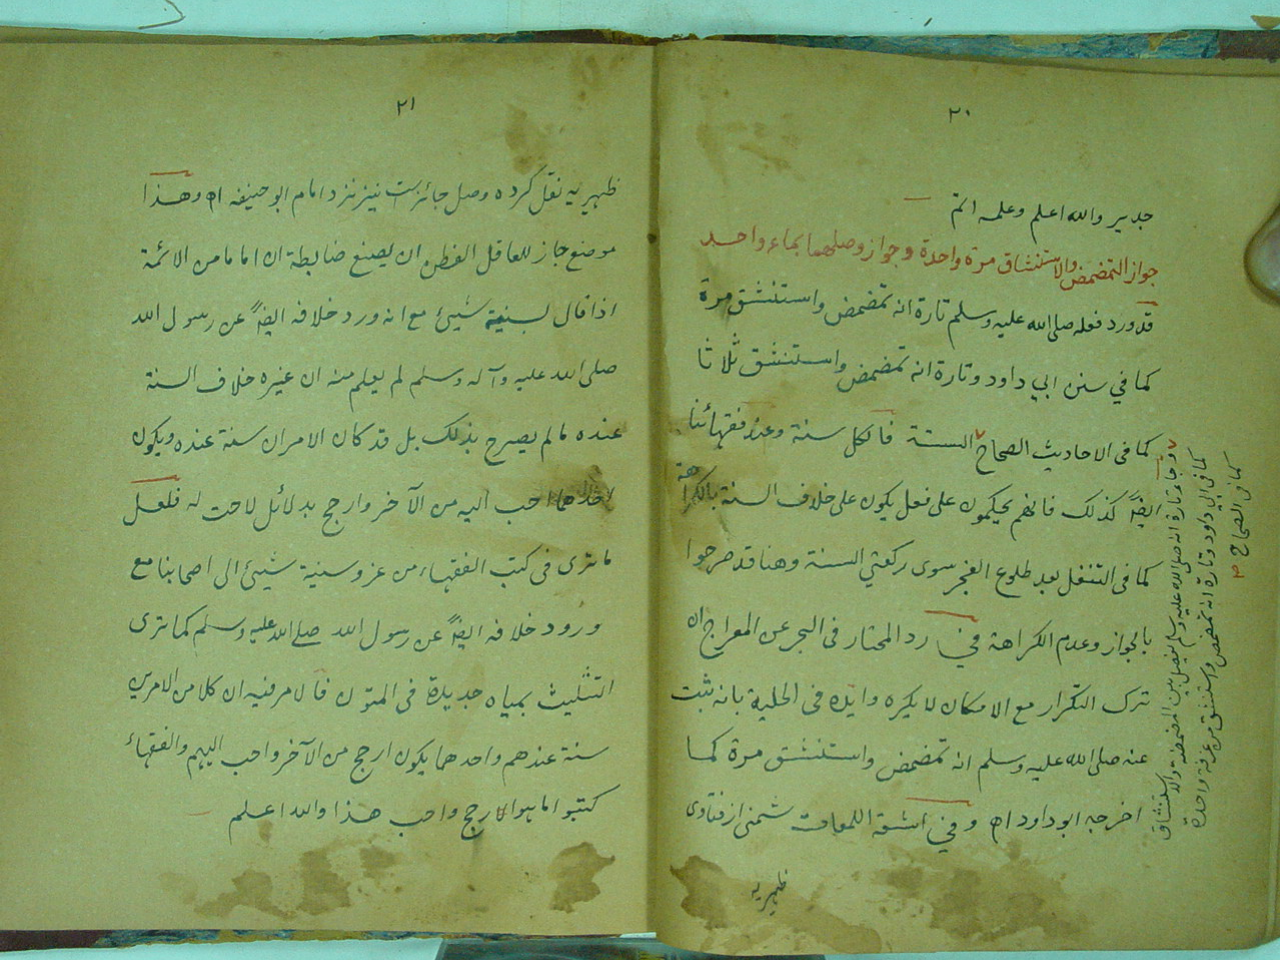 ٢٠
جدير والله اعلم وعلمه اتم
جواز التمضمض والاستنشاق مرة واحدة وجواز وصلهما بماء واحد
قد ورد فعله صلى الله عليه وسلم تارة انه تمضمض واستنشق مرة
كما في سنن ابي داود وتارة انه تمضمض واستنشق ثلاثا
كما فى الاحاديث الصحاح الستة فالكل سنة وعند فقهائنا
ايضاً كذلك فانهم يحكمون على فعل يكون على خلاف السنة بالكراهة
كما فى التنفل بعد طلوع الفجر سوى ركعتي السنة وهنا قد صرحوا
بالجواز وعدم الكراهة في رد المحتار فى البحر عن المعراج ان
ترك التكرار مع الامكان لا يكره وايده فى الحلية بانه ثبت
عنه صلى الله عليه وسلم انه تمضمض واستنشق مرة كما
اخرجه ابو داود اه وفي اشعة اللمعات شمنى از فتاوى
ظهيريه
وجاء تارة انه صلى الله عليه وسلم يفصل بين المضمضة والاستنشاق
كما فى ابي داود وتارة انه تمضمض واستنشق من غرفة واحدة
كما فى الصحاح
٢١
ظهيريه نقل كرده وصل جائزست نيز نزد امام ابو حنيفه اه وهذا
موضع جاز للعاقل الفطن ان يصنع ضابطة ان اماما من الائمة
اذا قال لسنية شيئ مع انه ورد خلافه ايضاً عن رسول الله
صلى الله عليه وآله وسلم لم يعلم منه ان غيره خلاف السنة
عنده مالم يصرح بذلك بل قد كان الامران سنة عنده ويكون
احدهما احب اليه من الآخر وارجح بدلائل لاحت له فلعل
ما ترى فى كتب الفقهاء من عزو سنية شيئ الى اصحابنا مع
ورود خلافه ايضاً عن رسول الله صلى الله عليه وسلم كما ترى
التثليث بمياه جديدة فى المتون فالامر فيه ان كلا من الامرين
سنة عندهم واحدهما يكون ارجح من الآخر واحب اليهم والفقهاء
كتبوا ما هو الارجح واحب هذا والله اعلم